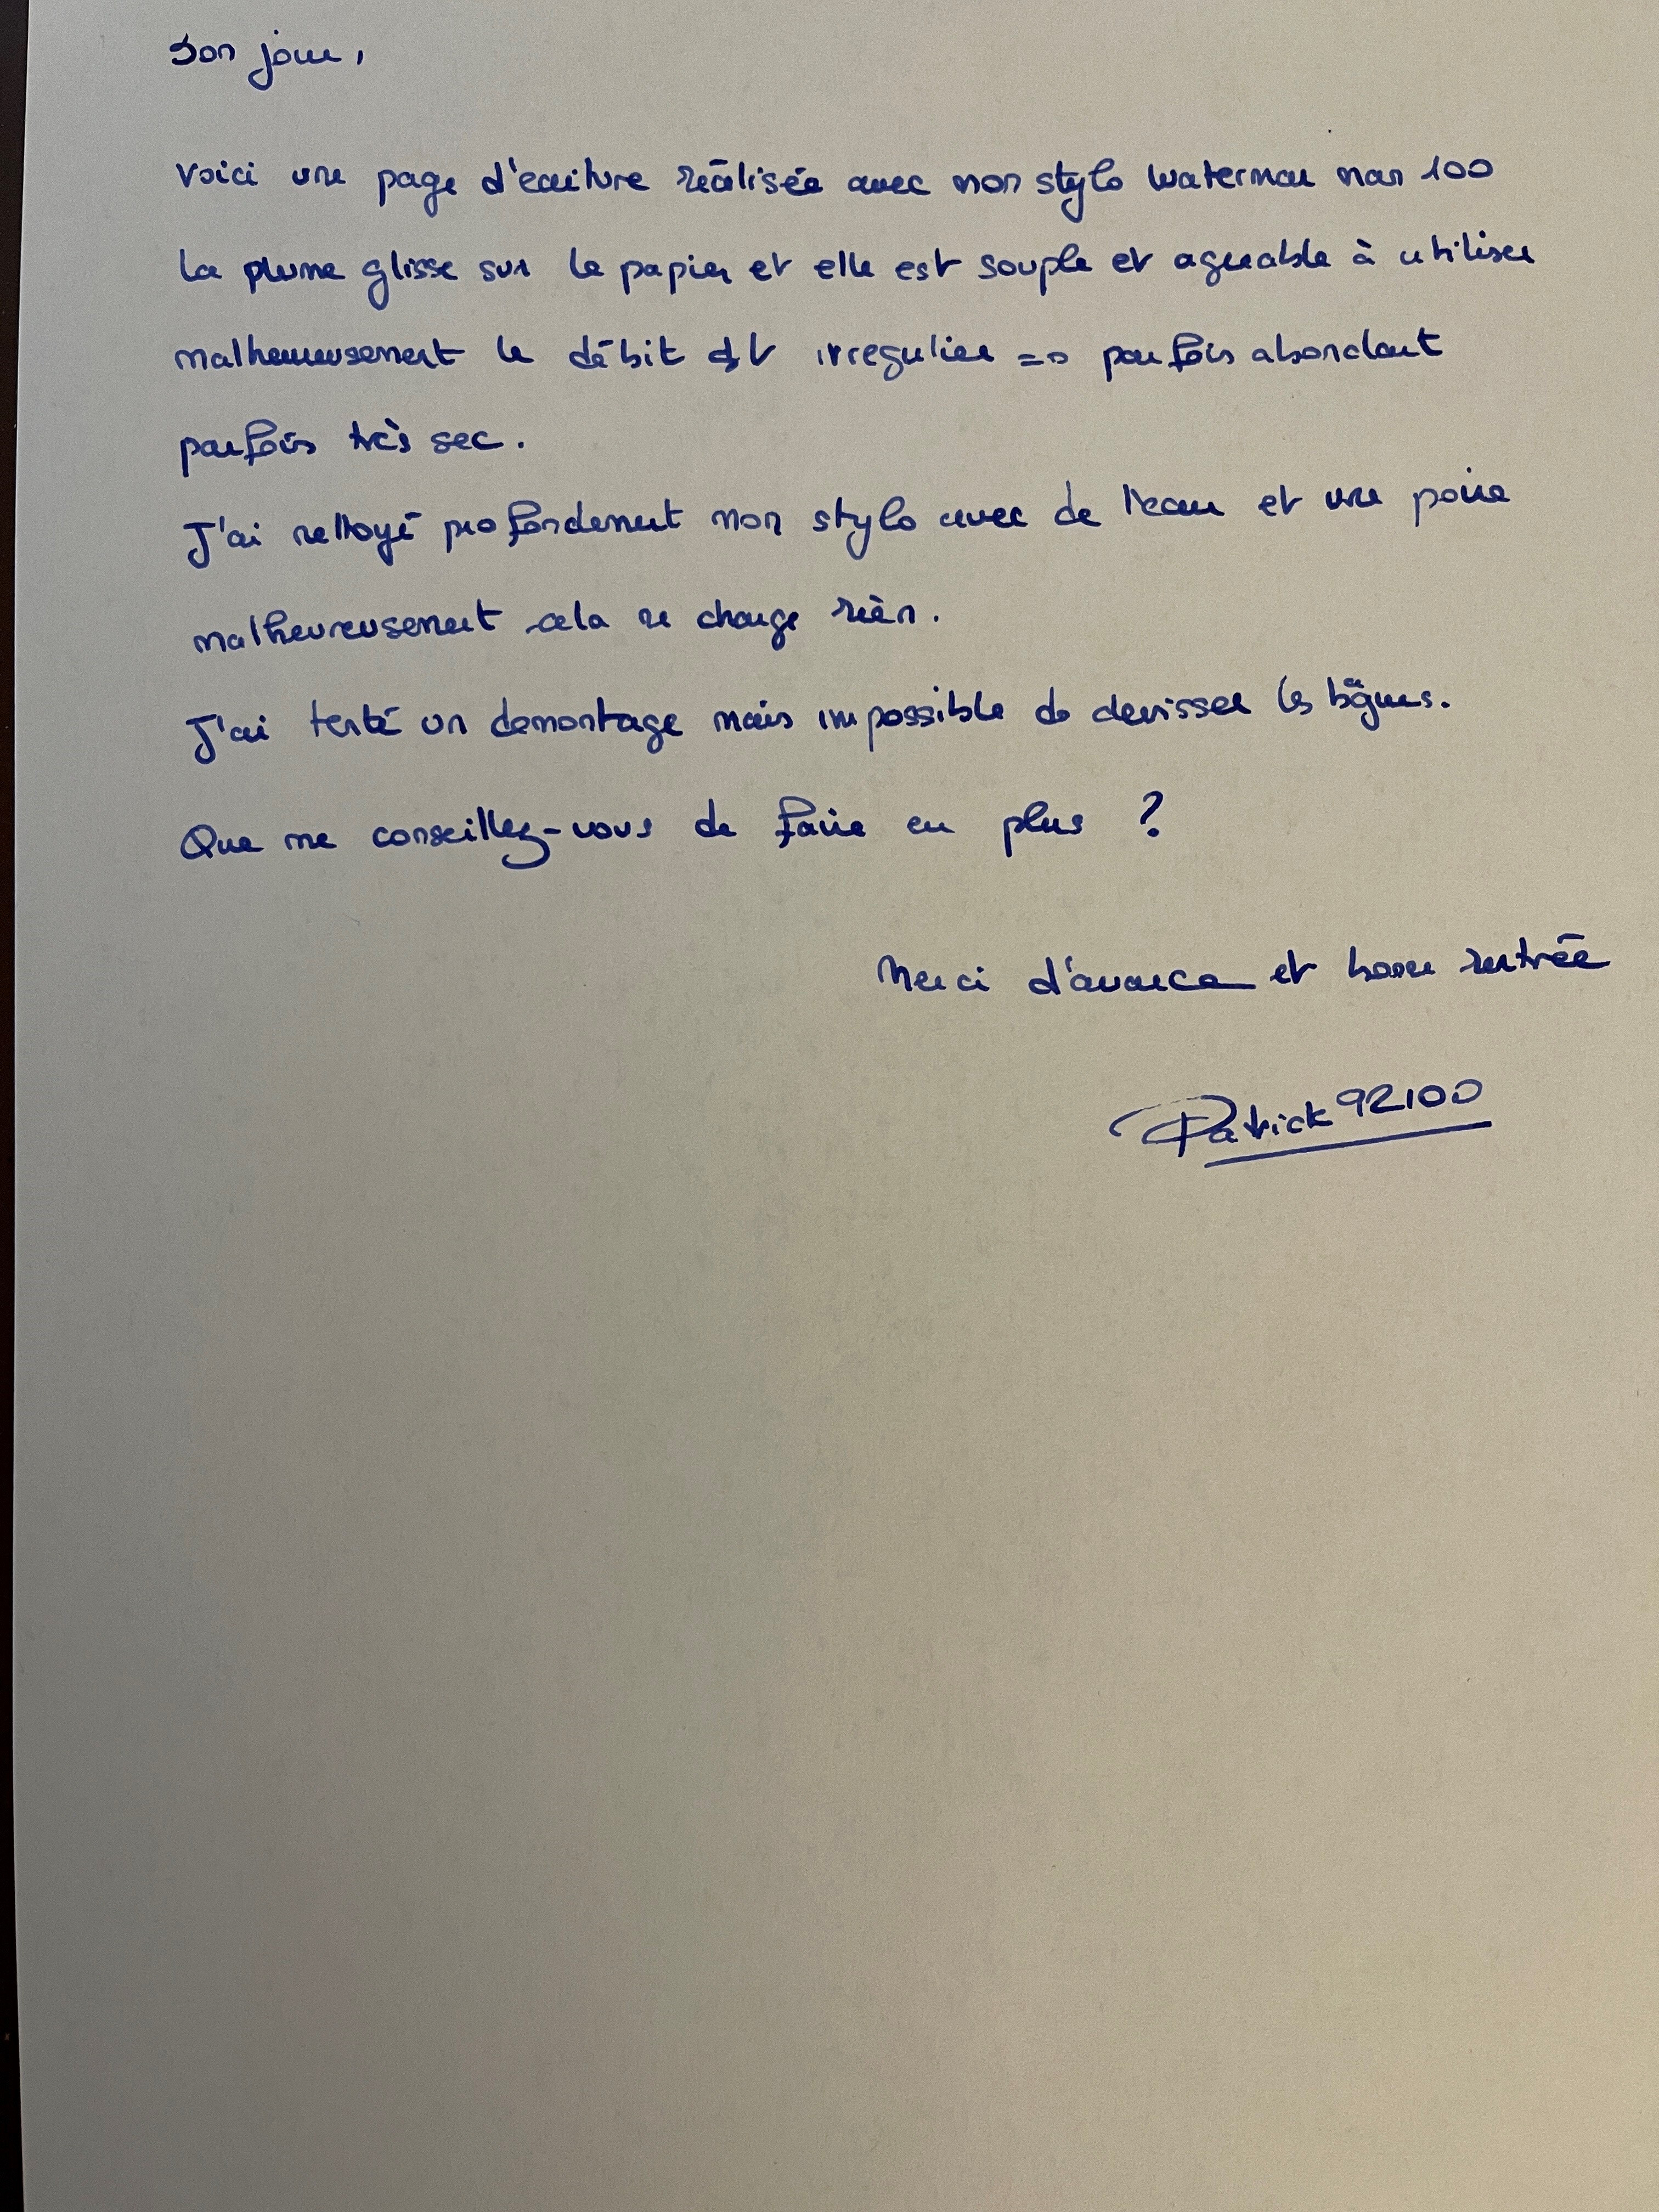 Bonjour,
Voici une page d'ecriture réalisée avec mon stylo Waterman man 100
La plume glisse sur le papier et elle est souple et agreable à utiliser
malheureusement le débit est irregulier => parfois abondant
parfois très sec.
J'ai nettoyé profondement mon stylo avec de l'eau et une poire
malheureusement cela ne change rien.
J'ai tenté un demontage mais impossible de devisser les bâgues.
Que me conseillez-vous de faire en plus ?
Merci d'avance et bonne rentrée
Patrick 92100